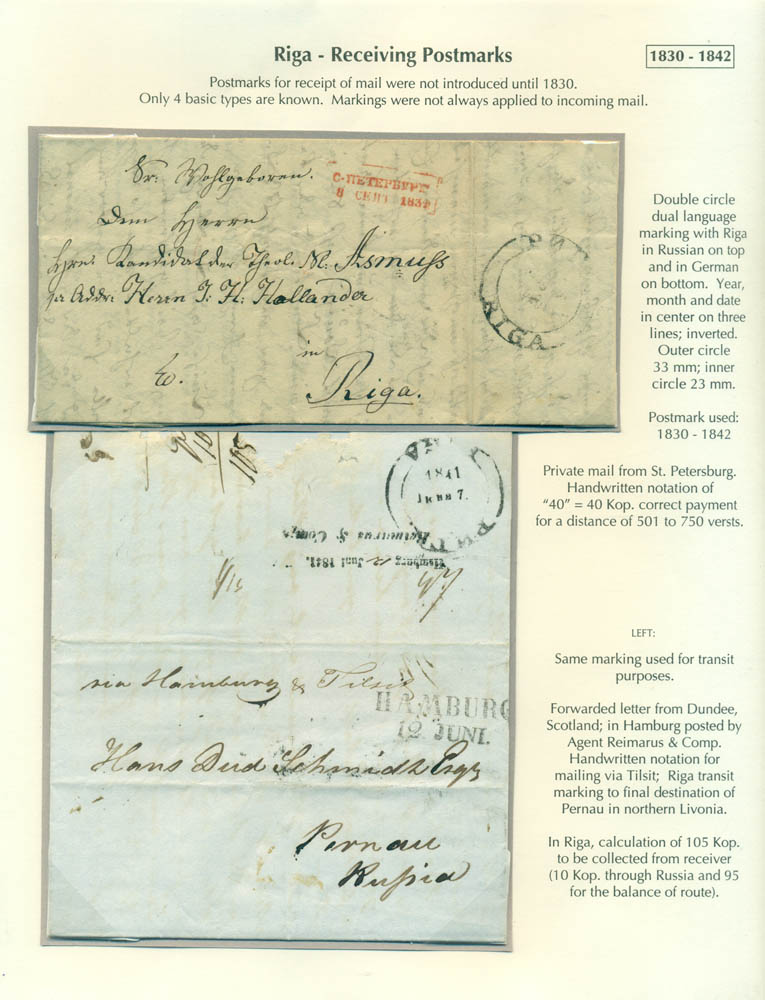 Riga - Receiving Postmarks
1830 - 1842
Postmarks for receipt of mail were not introduced until 1830.
Only 4 basic types are known. Markings were not always applied to incoming mail.
Sr: Wohlgeboren.
С-ПЕТЕРБУРГ
8 СЕНТ
Dem Herrn
Hrn: Kandidat der Theol: Asmuss
Addr: Herrn J: H: Hollander
RIGA
in
Riga.
Double circle
dual language
marking with Riga
in Russian on top
and in German
on bottom. Year,
month and date
in center on three
lines; inverted.
Outer circle
33 mm; inner
circle 23 mm.
Postmark used:
1830 - 1842
Private mail from St. Petersburg.
Handwritten notation of
“40” = 40 Kop. correct payment
for a distance of 501 to 750 versts.
105
1841
7.
Reimarus & Comp.
Hamburg 12 Juni 1841.
via Hamburg & Tilsit
HAMBURG
12. JUNI.
Hans Died Schmidt Esqr
Pernau
Russia
LEFT:
Same marking used for transit
purposes.
Forwarded letter from Dundee,
Scotland; in Hamburg posted by
Agent Reimarus & Comp.
Handwritten notation for
mailing via Tilsit; Riga transit
marking to final destination of
Pernau in northern Livonia.
In Riga, calculation of 105 Kop.
to be collected from receiver
(10 Kop. through Russia and 95
for the balance of route).